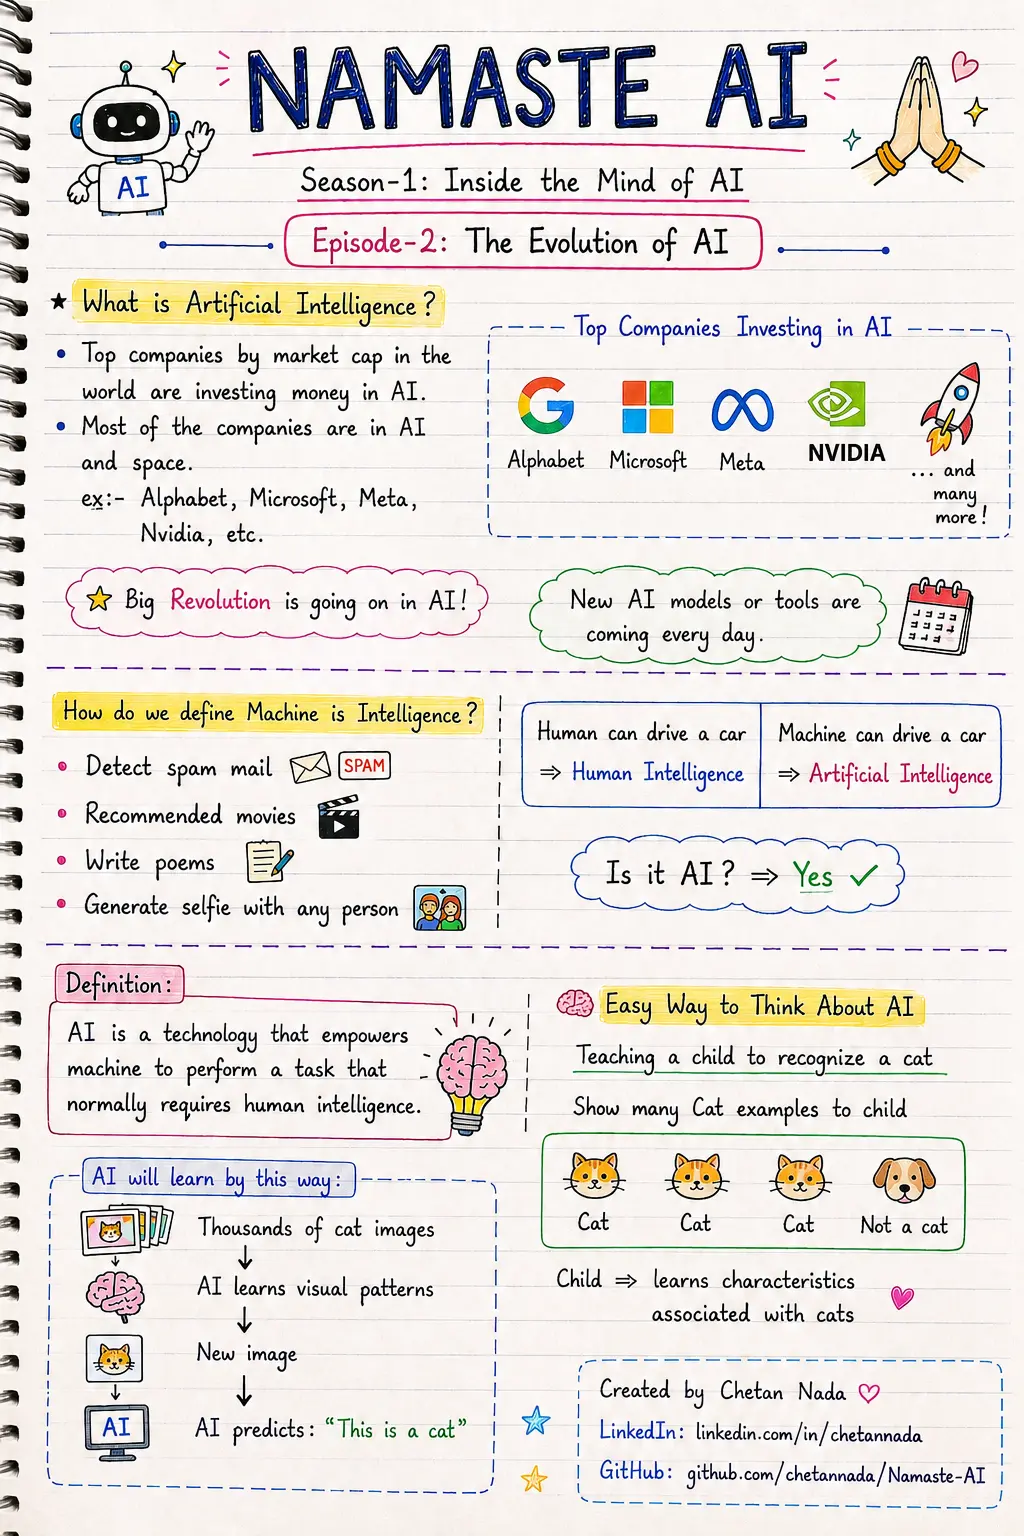 NAMASTE AI
AI
Season-1: Inside the Mind of AI
Episode-2: The Evolution of AI
★ What is Artificial Intelligence?
• Top companies by market cap in the
world are investing money in AI.
• Most of the companies are in AI
and space.
ex:- Alphabet, Microsoft, Meta,
Nvidia, etc.
Top Companies Investing in AI
Alphabet
Microsoft
Meta
NVIDIA
... and
many
more!
Big Revolution is going on in AI!
New AI models or tools are
coming every day.
How do we define Machine is Intelligence?
• Detect spam mail
SPAM
• Recommended movies
• Write poems
• Generate selfie with any person
Human can drive a car
⇒ Human Intelligence
Machine can drive a car
⇒ Artificial Intelligence
Is it AI? ⇒ Yes ✓
Definition:
AI is a technology that empowers
machine to perform a task that
normally requires human intelligence.
Easy Way to Think About AI
Teaching a child to recognize a cat
Show many Cat examples to child
Cat
Cat
Cat
Not a cat
Child ⇒ learns characteristics
associated with cats
AI will learn by this way:
Thousands of cat images
↓
AI learns visual patterns
↓
New image
↓
AI
AI predicts: "This is a cat"
Created by Chetan Nada ♡
LinkedIn: linkedin.com/in/chetannada
GitHub: github.com/chetannada/Namaste-AI